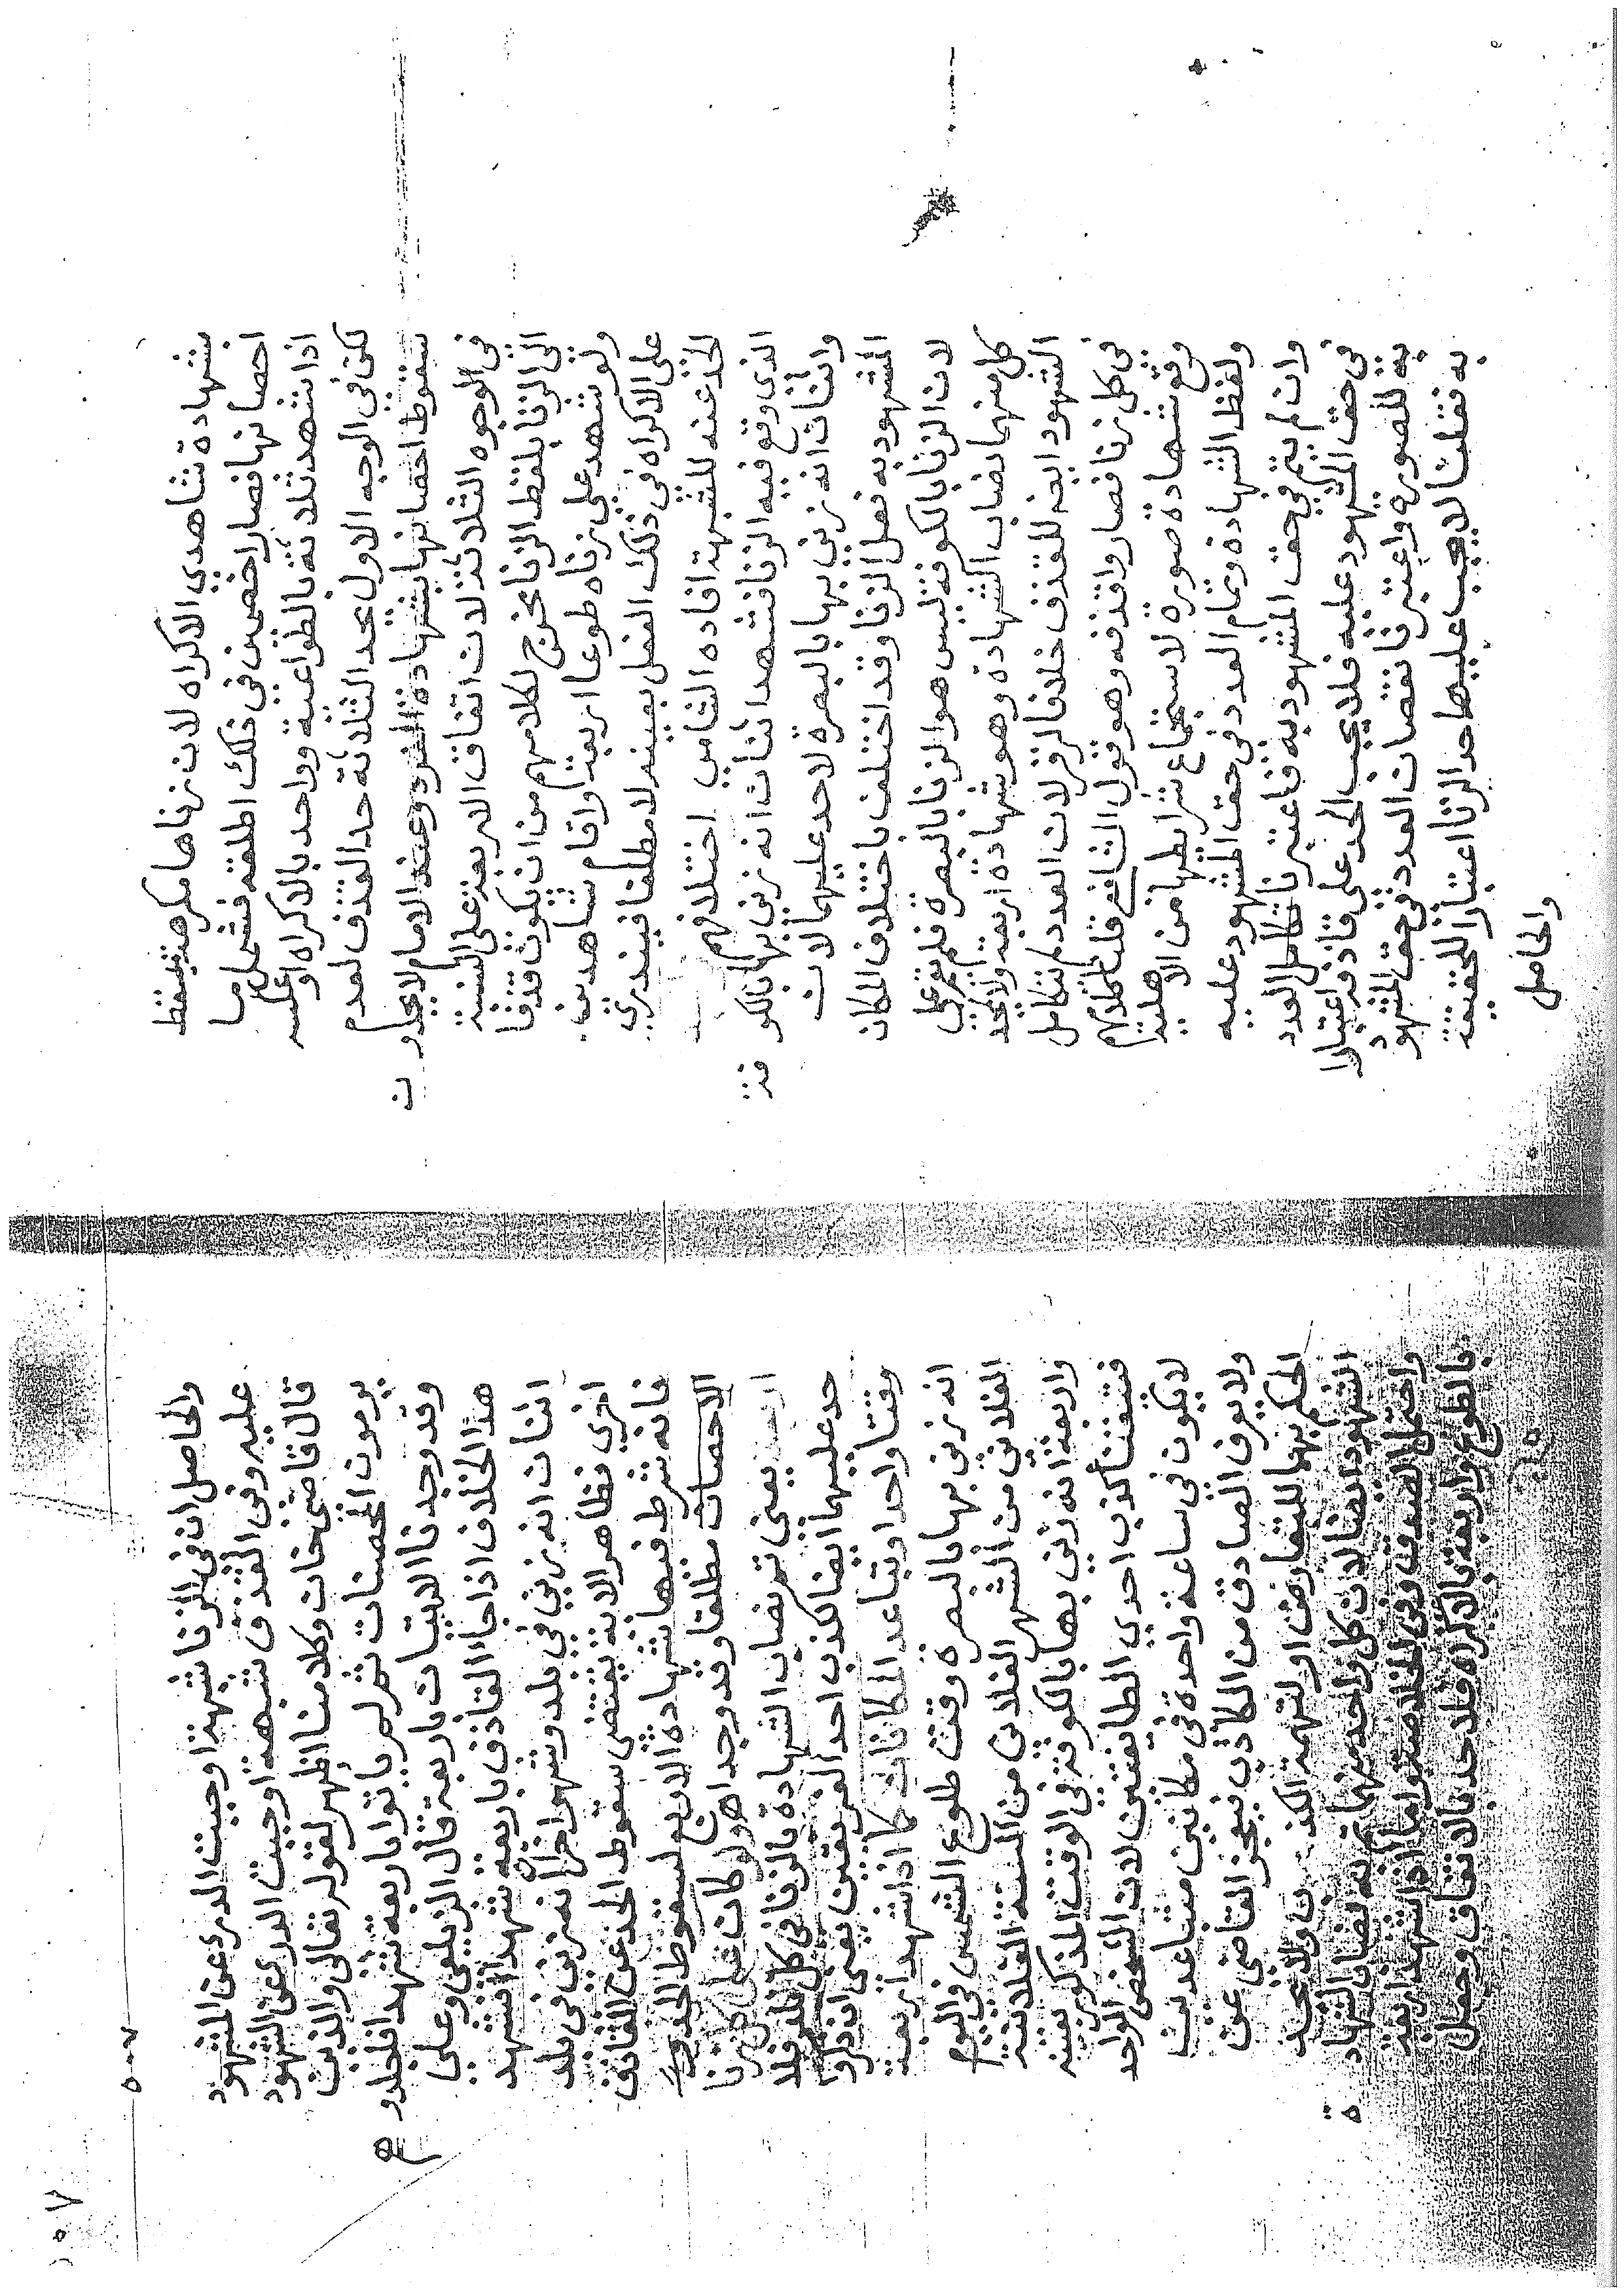 بشهادة شاهدي الاكراه لان زناها مكرهة يسقط
احصانها فصارا خصمين في ذلك اطلقه فشمل ما
اذا شهد ثلاثة بالطواعية وواحد بالاكراه او عكسه
لكن في الوجه الاول يحد الثلاثة حد القذف لعدم
سقوط احصانها بشهادة الفرد وعند الامام لا يحدون
في الوجوه الثلاثة لان اتفاق الاربعة على النسبة
الى الزنا بلفظ الزنا مخرج لكلامهم من ان يكون قذفا
ولو شهد على زناه طوعا اربعة واقام شاهدين
على الاكراه في ذلك الفعل بعينه لا مطلقا فيندري
الحد عنه للشبهة افاده الشامي اختلافهم
الذي وقع فيه الزنا فشهد اثنان انه زنى بها بالكوفة
واثنان انه زنى بها بالبصرة لا حد عليهما لان
المشهود به فعل الزنا وقد اختلف باختلاف المكان
لان الزنا بالكوفة ليس هو الزنا بالبصرة فلم يقم على
كل منهما نصاب الشهادة وهو شهادة اربعة ولا يحد
الشهود ايضا للقذف خلافا لزفر لان العدد لم يتكامل
في كل زنا فصاروا قذفة وهو قول الشافعي قلنا كلامهم
وقع شهادة صورة لاستجماع شرايطها من الاهلية
ولفظ الشهادة وتمام العدد في حق المشهود عليه
وان لم يتم في حق المشهود به فاعتبرنا تكامل العدد
في حق المشهود عليه فلا يجب الحد على قاذفه اعتبارا
به للصورة واعتبرنا نقصان العدد في حق المشهود
به فقلنا لا يجب عليهما حد الزنا اعتبارا للحقيقة
والحاصل
والحاصل ان في الزنا شبهة اوجبت الدرء عن المشهود
عليه وفي القذف شبهة اوجبت الدرء عن الشهود
قال قاضي خان وكلامنا اظهر لقوله تعالى والذين
يرمون المحصنات ثم لم ياتوا باربعة شهداء فاجلدوهم
وقد وجدنا الاتيان باربعة قال الزيلعي وعلى
هذا الخلاف اذا جاء القاذف باربعة شهداء فشهد
اثنان انه زنى في بلد وشهد اخران انه زنى في بلد
اخرى فظاهر الاية يقتضي سقوط الحد عن القاذف
فانه شرط فيها شهادة الاربع لسقوط الحد
الاحصان مطلقا وقد وجدا ولو كان على كل زنا
اربعة يعني تم نصاب الشهادة بالزنا في كل بلد فلا
حد عليهما ايضا لكذب احد الفريقين يعني ان ذكروا
وقتا واحدا وتباعد المكانان كما اذا شهد اربعة
انه زنى بها بالبصرة وقت طلوع الشمس في اليوم
الفلاني من الشهر الفلاني من السنة الفلانية
واربعة انه زنى بها بالكوفة في الوقت المذكور بعينه
فتيقنا كذب احدي الطايفتين لان الشخص الواحد
لا يكون في ساعة واحدة في مكانين متباعدين
ولا يعرف الصادق من الكاذب فيعجز القاضي عن
الحكم بهما للتعارض او لتهمة الكذب ولا يحد
الشهود ايضا لان كل واحد منهما تم به نصاب الشهادة
واحتمل الصدق وفي الخلاصة واما اذا شهد اربعة
بالطوع واربعة بالاكراه فلا حد بالاتفاق وجعل